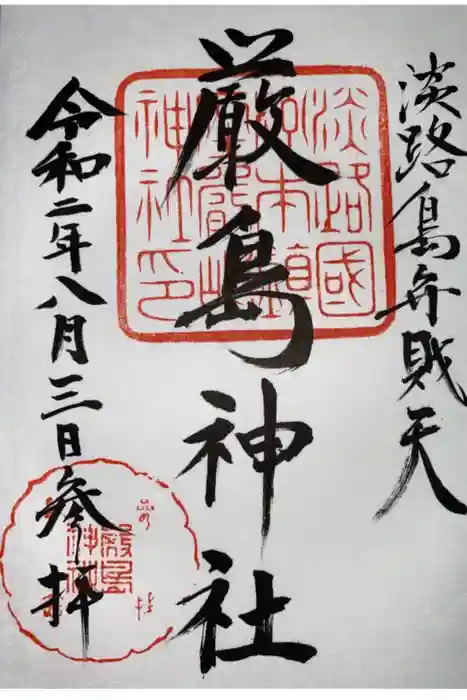 淡路島弁財天
厳島神社
令和二年八月三日参拝
淡路國
洲本鎮
厳島
神社印